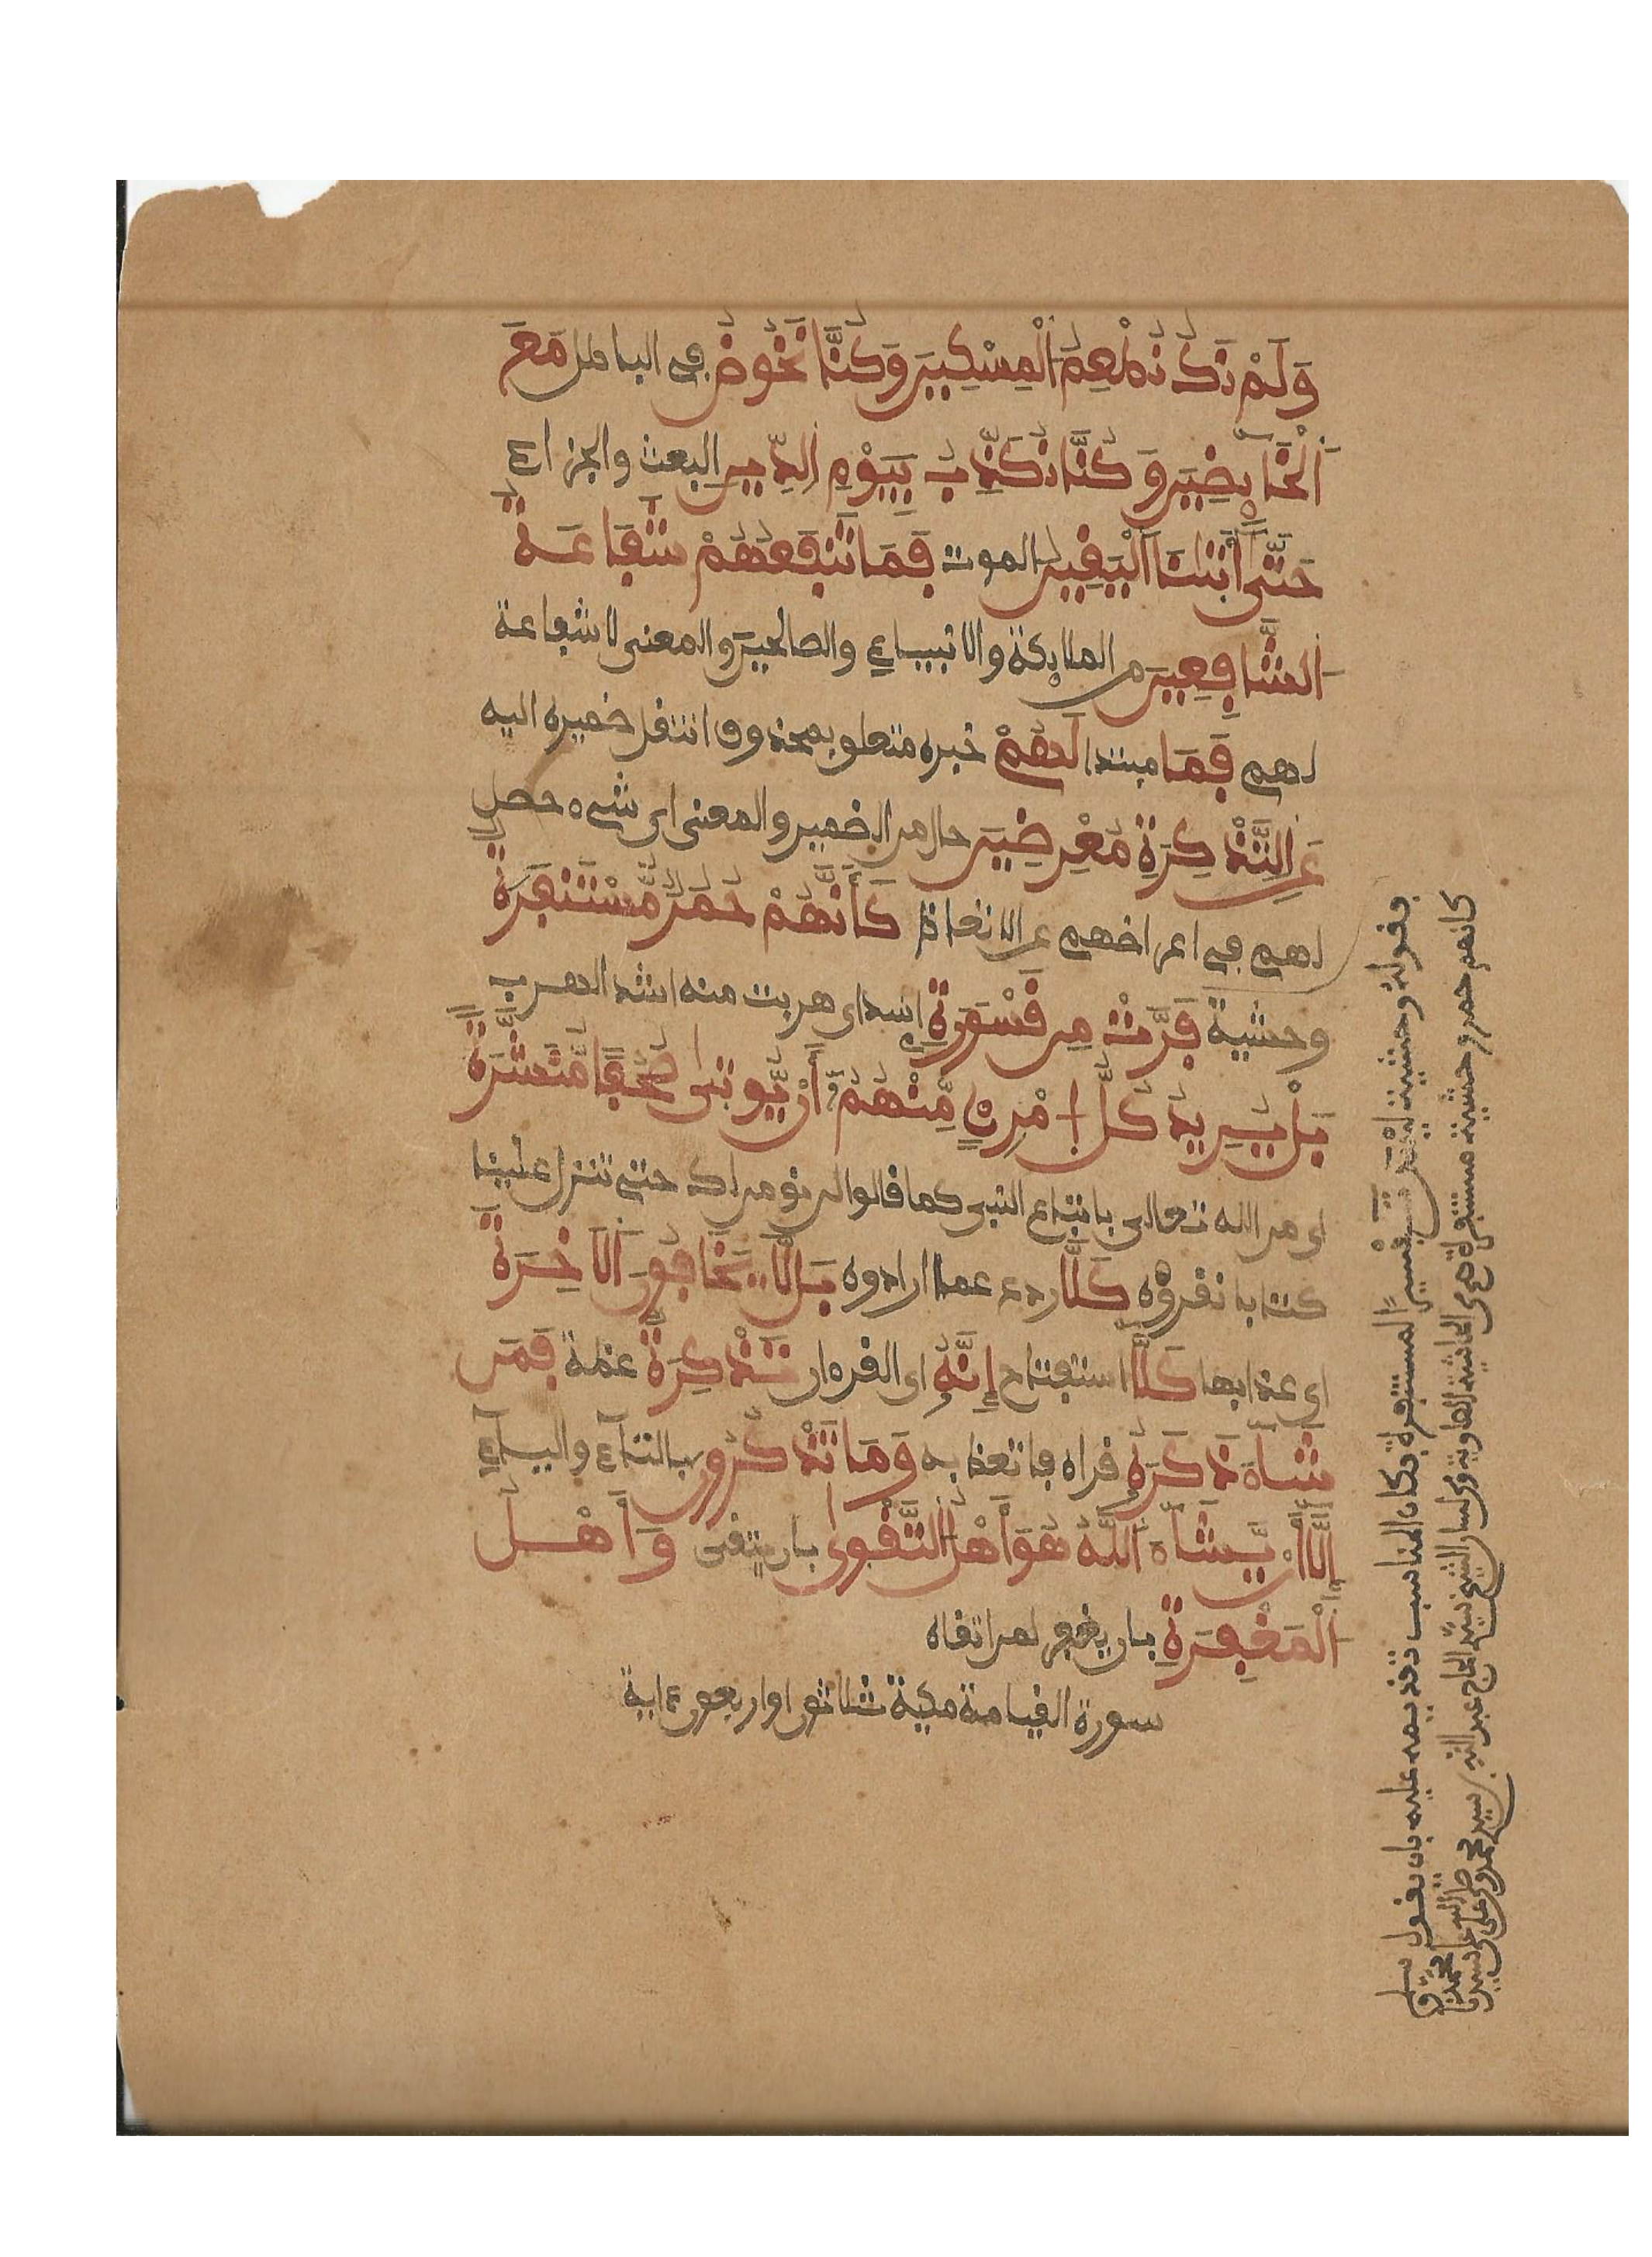 وَلَمْ نَكُ نُطْعِمُ الْمِسْكِينَ وَكُنَّا نَخُوضُ في الباطل مَعَ
اَلْخَآئِضِينَ وَكُنَّا نُكَذِّبُ بِيَوْمِ الدِّينِ البعث والجزاء
حَتَّى أَتَيٰنَا اَلْيَقِينُ الموت فَمَا تَنفَعُهُمْ شَفَاعَةُ
الشَّافِعِينَ من الملائكة والانبياء والصالحين والمعنى لا شفاعة
لهم فَمَا مبتدا لَهُمْ خبره متعلق بمحذوف انتقل ضميره اليه
عَنِ التَّذْكِرَةِ مُعْرِضِينَ حال من الضمير والمعنى اي شيء حصل
لهم في اعراضهم عن الاتعاظ كَأَنَّهُمْ حُمُرٌ مُّسْتَنفَرَةٌ
وحشية فَرَّتْ مِن قَسْوَرَةٍ اسد اي هربت منه اشد الهرب
بَلْ يُرِيدُ كُلُّ اِمْرِئٍ مِّنْهُمُ أَنْ يُّوتىٰ صُحُفًا مُّنَشَّرَةً
اي من الله تعالى باتباع النبي كما قالوا لن نومن لك حتى تنزل علينا
كتابا نقرؤه كَلَّا ردع عما ارادوه بَل لَّا يَخَافُونَ اَلَاخِرَةَ
اي عذابها كَلَّا استفتاح إِنَّهُ اي القرءان تَذْكِرَةٌ عظة فَمَن
شَآءَ ذَكَرَهُ قراه فاتعظ به وَمَا تَذْكُرُونَ بالتاء والياء
إِلَّا أَنْ يَّشَآءَ اَللَّهُ هُوَ أَهْلُ التَّقْوىٰ بان يتقى وَأَهْلُ
اَلْمَغْفِرَةِ بان يغفر لمن اتقاه
سورة القيامة مكية ثلاثون او اربعون ءاية
فقوله وحشية تفسير المستنفرة فكان المناسب تقديمه عليه بان يقول
كانهم حمر وحشية مستنفرة الصاوية الشيخ الحاج عبد